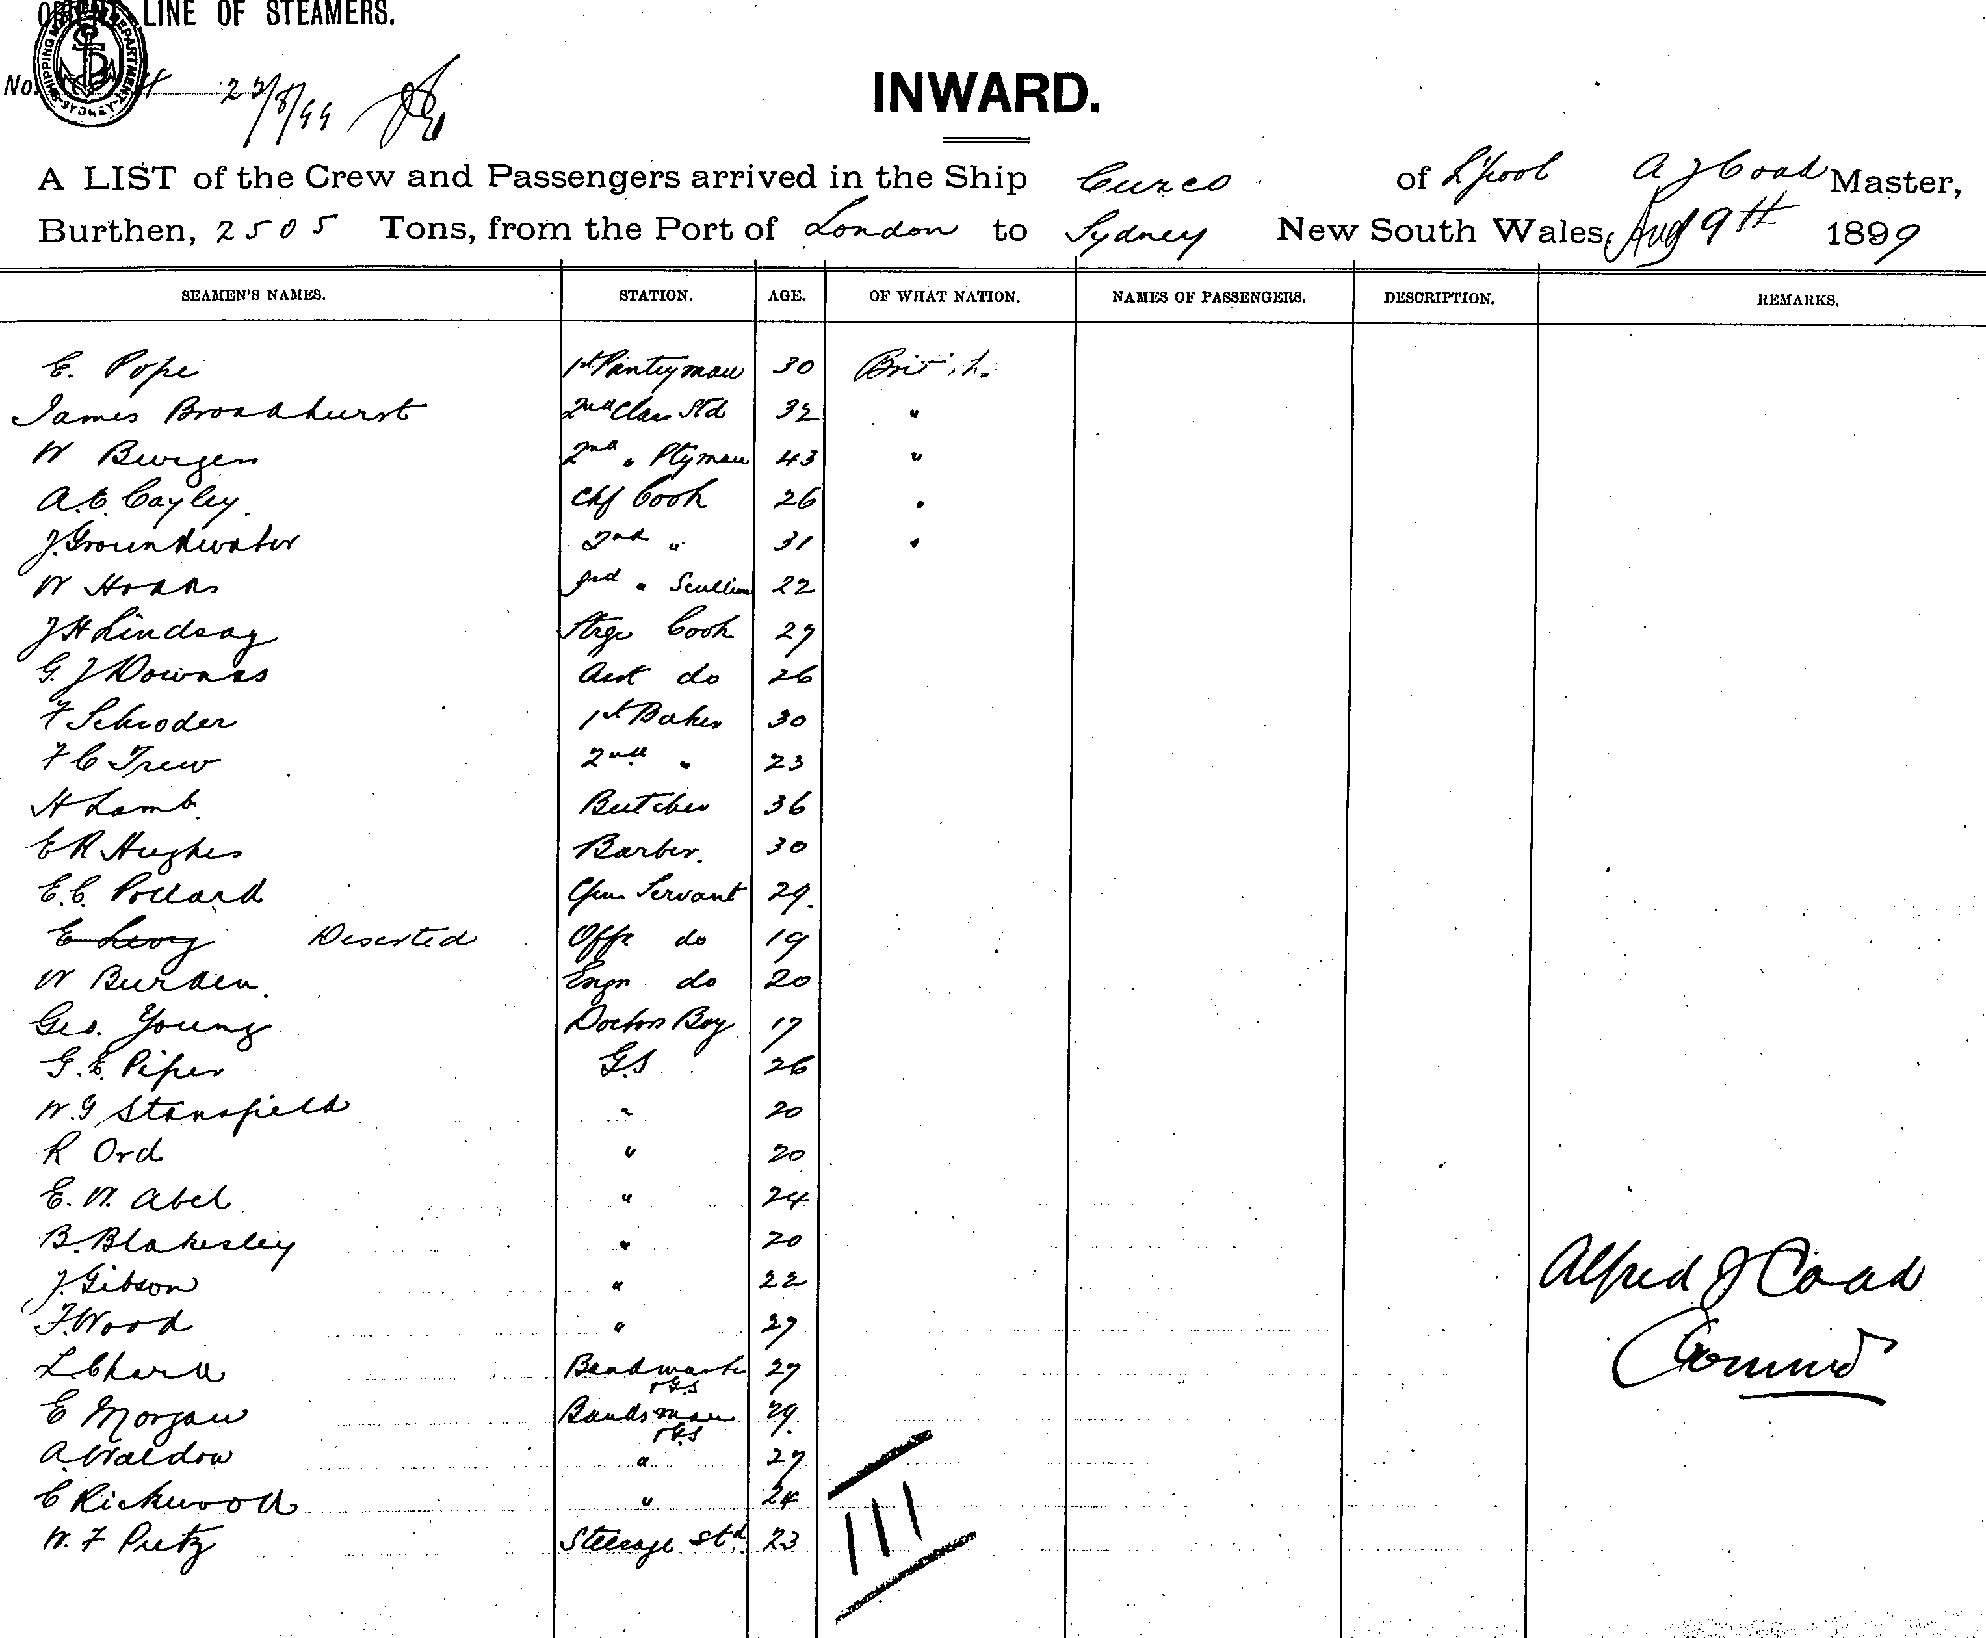 ORIENT LINE OF STEAMERS.
SHIPPING MASTER'S DEPARTMENT SYDNEY
No. 23/8/99
INWARD.
A LIST of the Crew and Passengers arrived in the Ship Cuzco of L'pool A J Coad Master,
Burthen, 2505 Tons, from the Port of London to Sydney New South Wales, Aug 9th 1899
SEAMEN'S NAMES. STATION. AGE. OF WHAT NATION. NAMES OF PASSENGERS. DESCRIPTION. REMARKS.
E. Pope 1st Pantryman 30 British.
James Broadhurst 2nd Class Std 32 "
W Burgess 2nd " Ptyman 43 "
A.E. Cayley. Chf Cook 26 "
J. Groundwater 2nd " 31 "
W 3rd " Scullion 22
J H Lindsay Strge Cook 27
G. J Downess Asst do 26
F Schroder 1st Baker 30
F C Trew 2nd " 23
H Lamb. Butcher 36
E R Hughes Barber. 30
E.C. Pollard Gen Servant 29.
E Levy Deserted Offr do 19
W Burden. Engr do 20
Geo. Young Doctors Boy 17
G. E. Piper G.S 26
W. G Stansfield " 20
R Ord " 20
E. W. Abel " 24
B. Blakesley " 20
J. Gibson " 22
F. Wood " 27
L Chard Bandmaster & G.S 27
E Morgan Bandsman & G.S 29.
A. Waldon " 27
C Rickwood " 24
W. F Pretz Steerage Std. 23
111
Alfred J Coad
Command